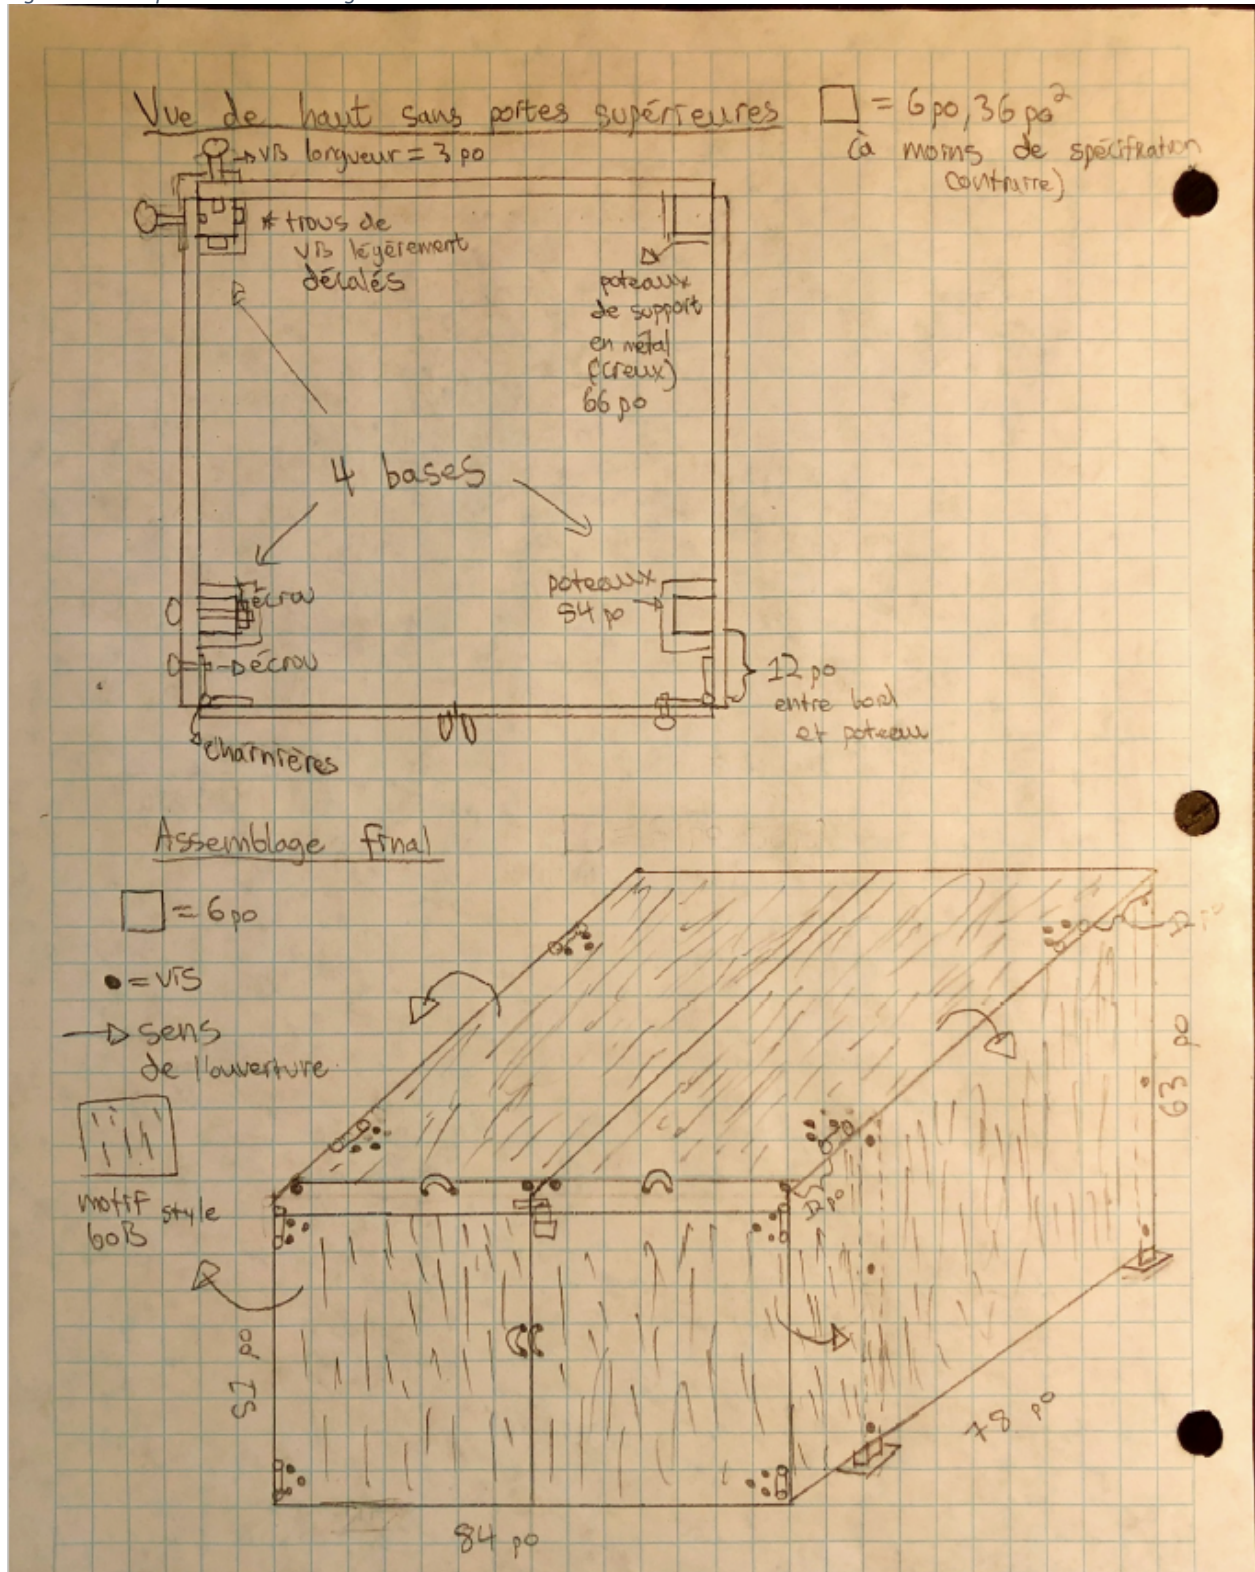 Vue de haut sans portes supérieures
□ = 6 po, 36 po²
(à moins de spécification
contraire)
→ vis longueur = 3 po
* trous de
vis légèrement
décalés
poteaux
de support
en métal
(creux)
66 po
4 bases
écrou
poteaux
54 po
→ écrou
12 po
entre bord
et poteau
charnières
Assemblage final
□ = 6 po
• = vis
→ sens
de l'ouverture
motif style
bois
63 po
51 po
78 po
84 po